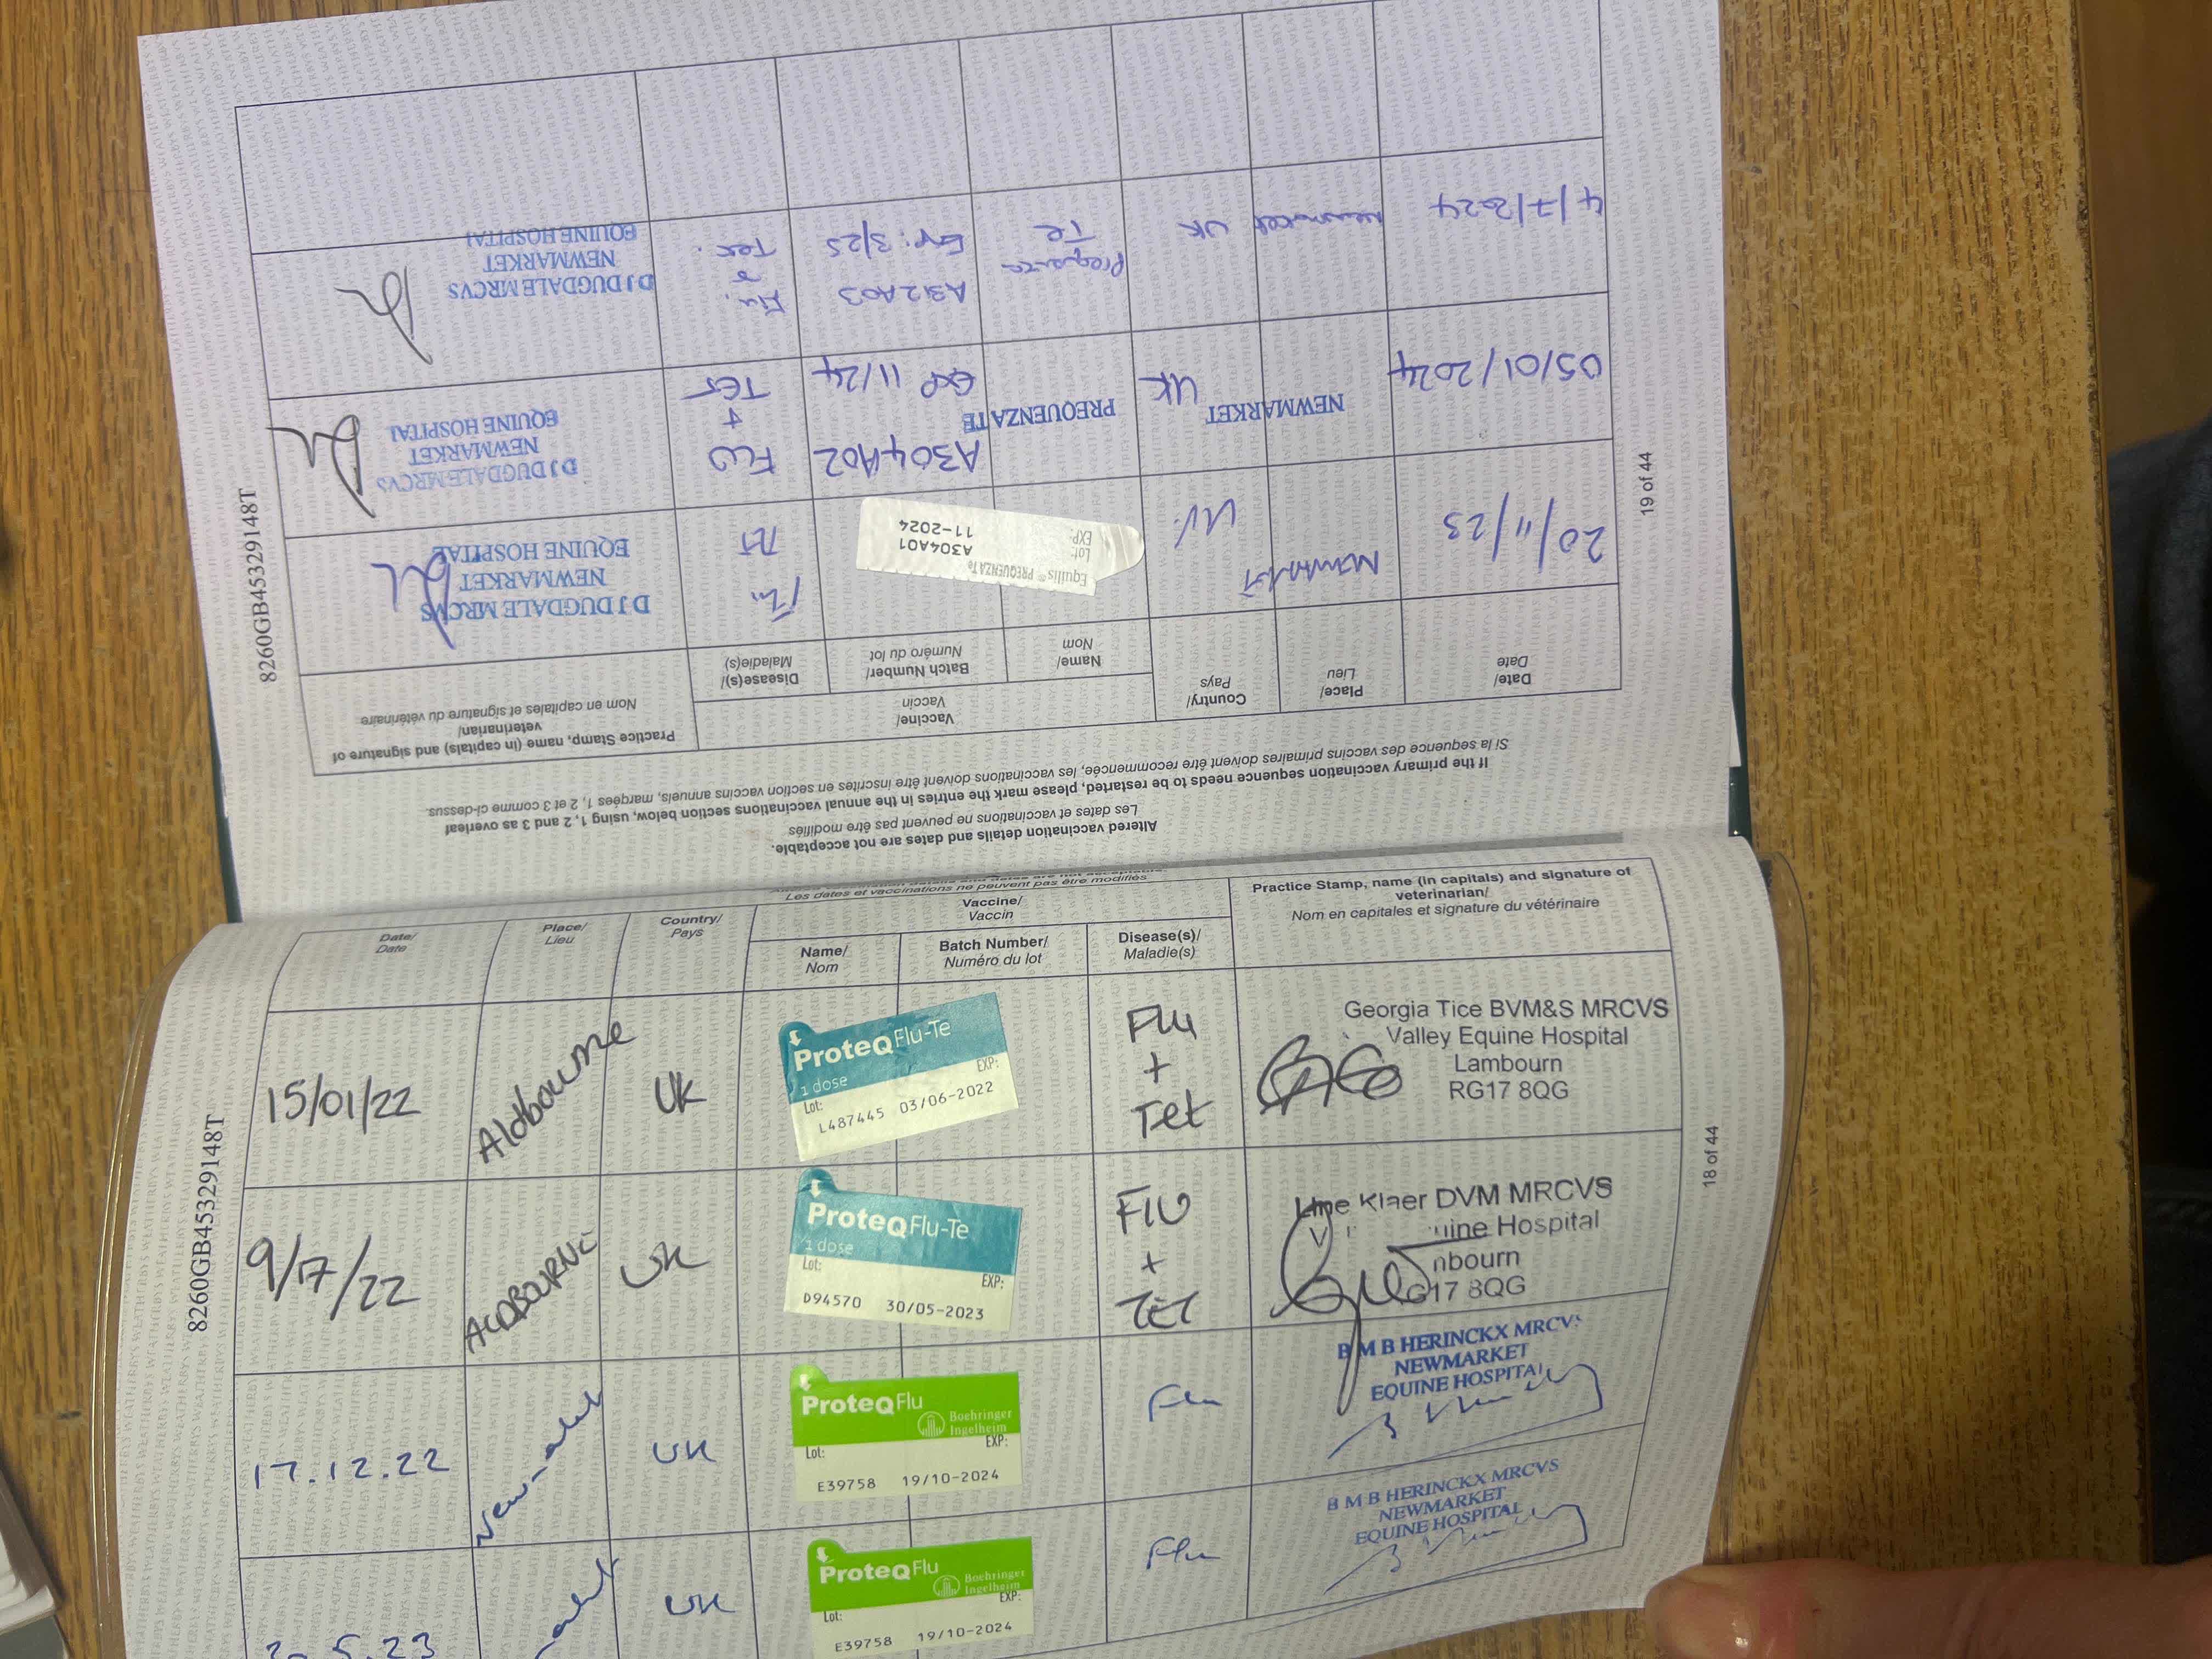 Les dates et vaccinations ne peuvent pas être modifiés
Date/
Date
Place/
Lieu
Country/
Pays
Vaccine/
Vaccin
Name/
Nom
Batch Number/
Numéro du lot
Disease(s)/
Maladie(s)
Practice Stamp, name (in capitals) and signature of
veterinarian/
Nom en capitales et signature du vétérinaire
15/01/22
Aldbourne
UK
ProteqFlu-Te
1 dose
Lot:
EXP:
L487445 03/06-2022
Flu
+
Tet
Georgia Tice BVM&S MRCVS
Valley Equine Hospital
Lambourn
RG17 8QG
9/7/22
ALDBOURNE
UK
ProteqFlu-Te
1 dose
Lot:
EXP:
D94570 30/05-2023
Flu
+
TET
Klaer DVM MRCVS
Hospital
17 8QG
17.12.22
UK
ProteqFlu
Boehringer
Ingelheim
Lot:
EXP:
E39758 19/10-2024
Flu
B M B HERINCKX MRCVS
NEWMARKET
EQUINE HOSPITAL
5.23
UK
ProteqFlu
Boehringer
Ingelheim
Lot:
EXP:
E39758 19/10-2024
Flu
B M B HERINCKX MRCVS
NEWMARKET
EQUINE HOSPITAL
8260GB45329148T
18 of 44
Altered vaccination details and dates are not acceptable.
Les dates et vaccinations ne peuvent pas être modifiés
If the primary vaccination sequence needs to be restarted, please mark the entries in the annual vaccinations section below, using 1, 2 and 3 as overleaf
Si la sequence des vaccins primaires doivent être recommencée, les vaccinations doivent être inscrites en section vaccins annuels, marqées 1, 2 et 3 comme ci-dessus.
Date/
Date
Place/
Lieu
Country/
Pays
Vaccine/
Vaccin
Name/
Nom
Batch Number/
Numéro du lot
Disease(s)/
Maladie(s)
Practice Stamp, name (in capitals) and signature of
veterinarian/
Nom en capitales et signature du vétérinaire
20/11/23
Newmarket
UK
Equilis® PREQUENZA Te
Lot: A304A01
EXP: 11-2024
Flu
Tet
D J DUGDALE MRCVS
NEWMARKET
EQUINE HOSPITAL
05/01/2024
NEWMARKET
UK
PREQUENZA TE
A304A02
EXP 11/24
FLU
+
TET
D J DUGDALE MRCVS
NEWMARKET
EQUINE HOSPITAL
4/7/2024
Newmarket
UK
Prequenza
Te
A312A03
Exp: 3/25
Flu.
&
Tet.
D J DUGDALE MRCVS
NEWMARKET
EQUINE HOSPITAL
8260GB45329148T
19 of 44